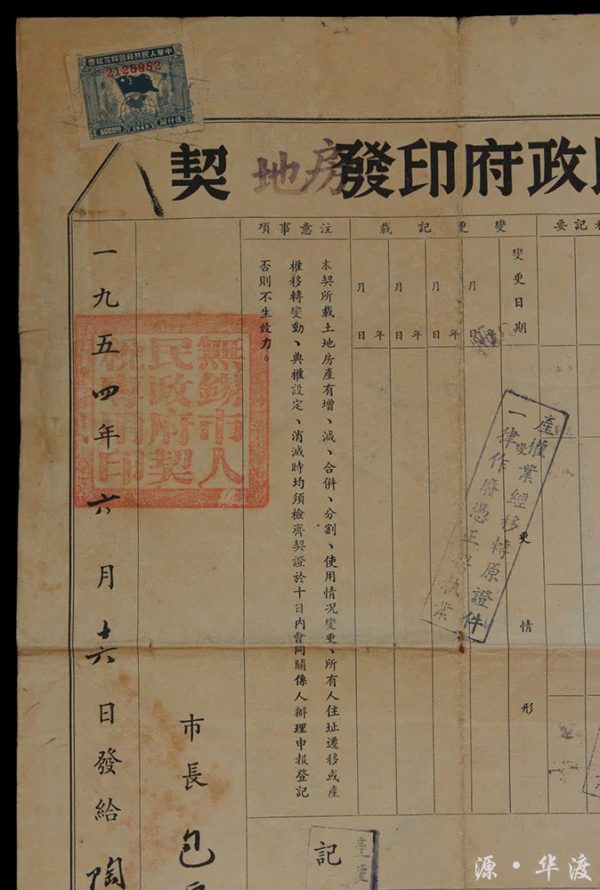 中華人民共和國印花稅票
2128952
1949
政府印發房地契
記要
變更記載
變更日期
變更情形
年月日
年月日
年月日
年月日
產權業經移轉原證件
一律作廢憑正契執業
注意事項
本契所載土地房產有增、減、合併、分割、使用情況變更、所有人住址遷移或產
權移轉變動、典權設定、消滅時均須檢齊契證於十日內會同關係人辦理申報登記
否則不生效力。
記
產權
市長 包
無錫市人
民政府契
稅專用印
一九五四年六月十六日發給 陶
源·华渡